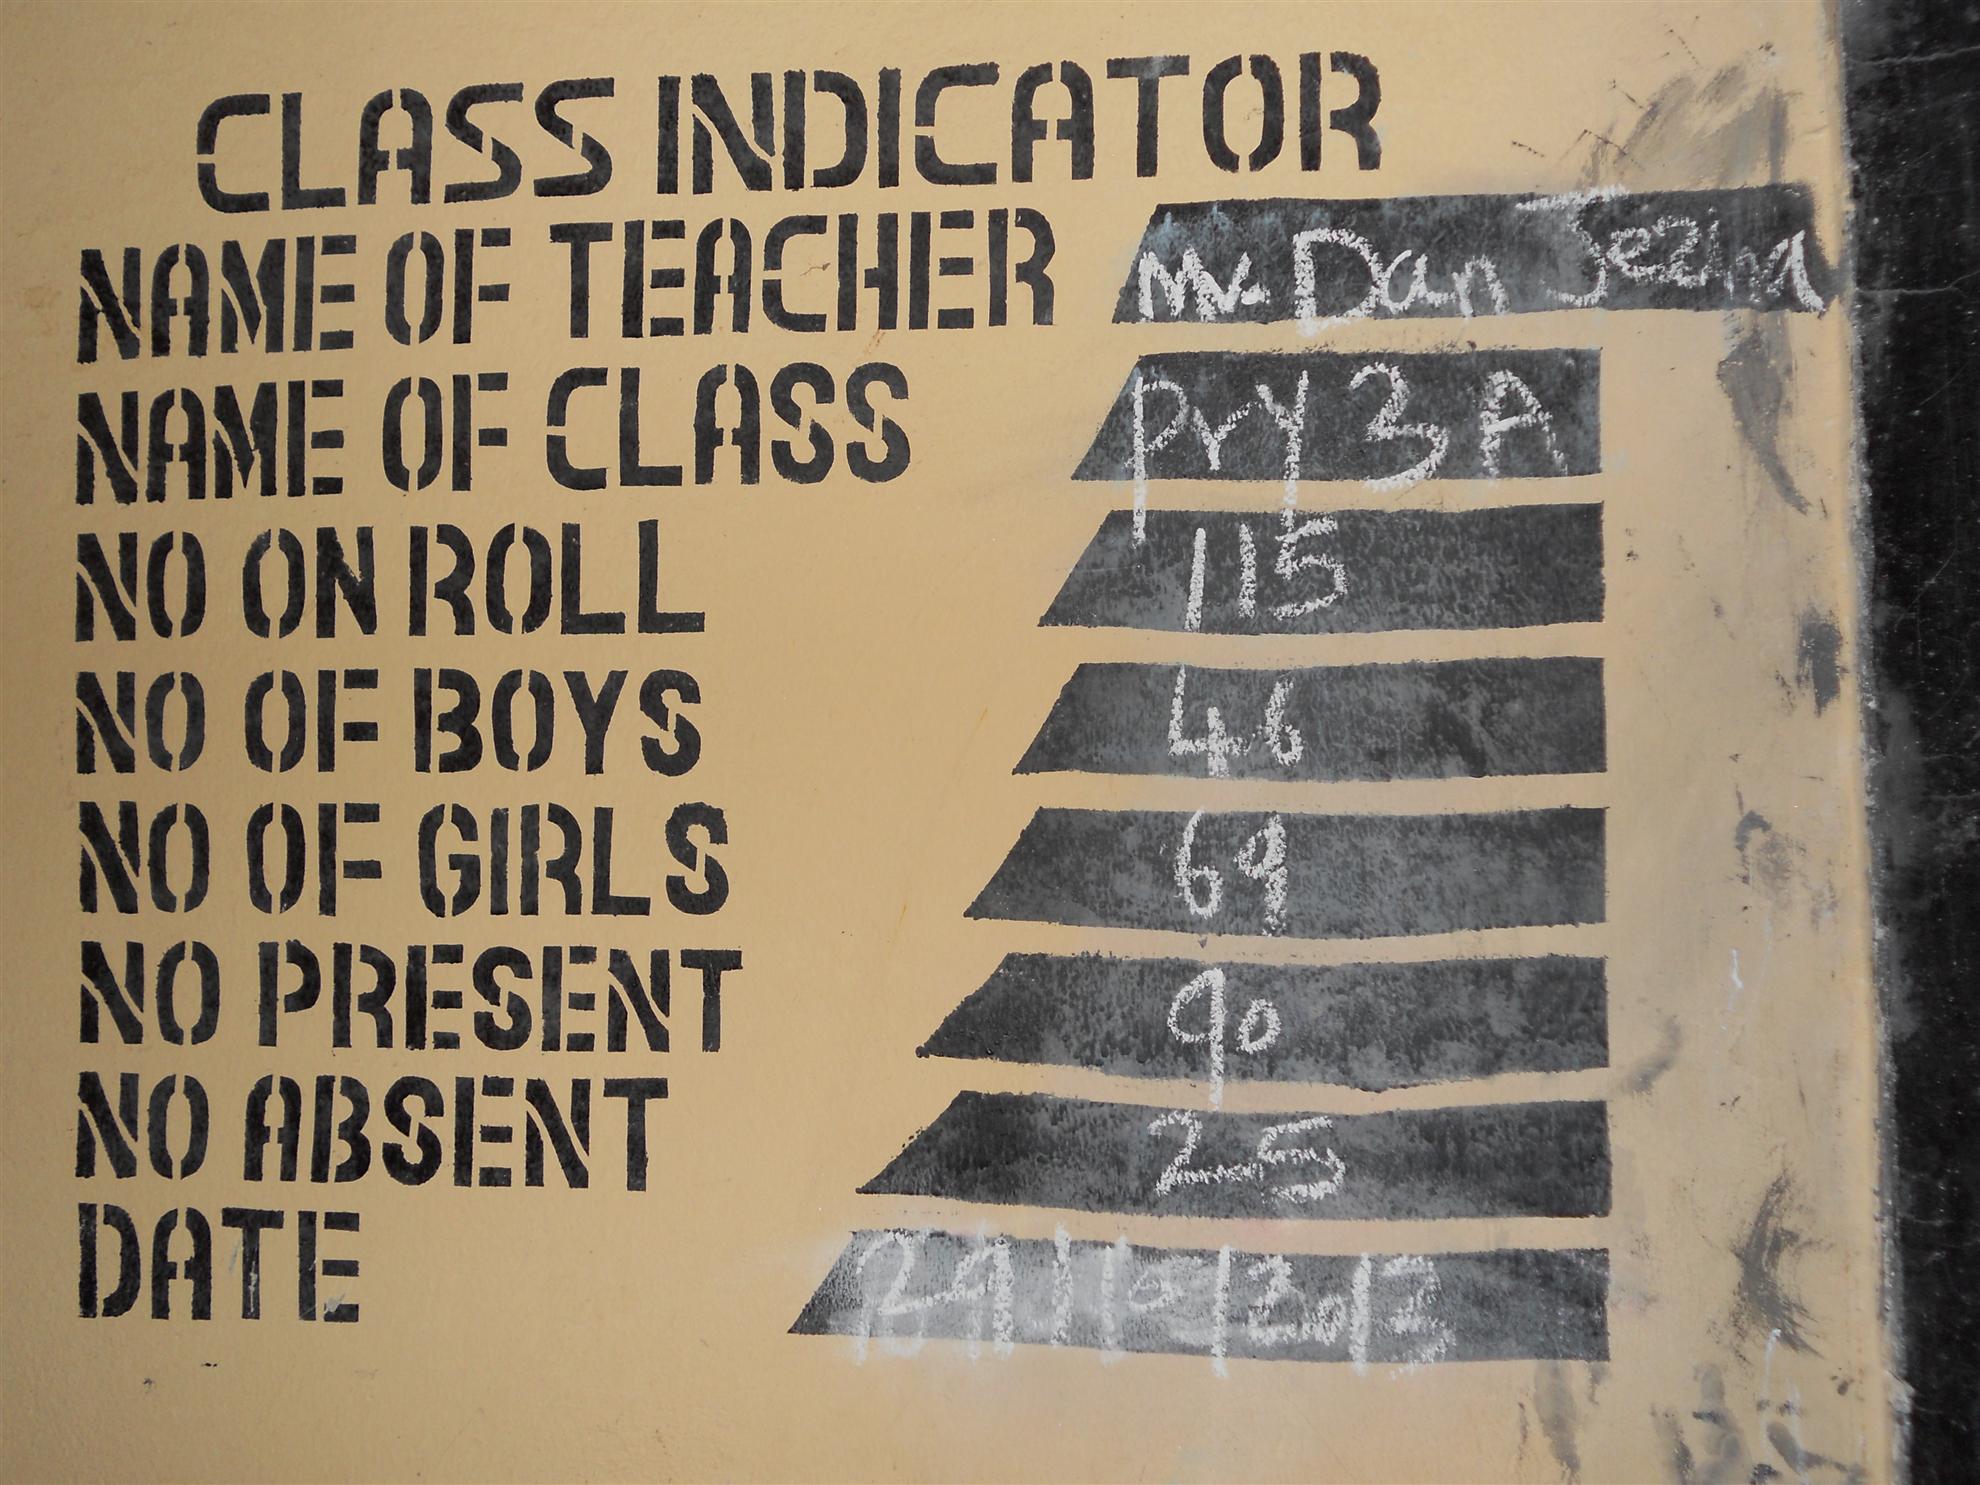 CLASS INDICATOR
NAME OF TEACHER Mr. Dan
NAME OF CLASS Pry 3 A
NO ON ROLL 115
NO OF BOYS 46
NO OF GIRLS 69
NO PRESENT 90
NO ABSENT 25
DATE